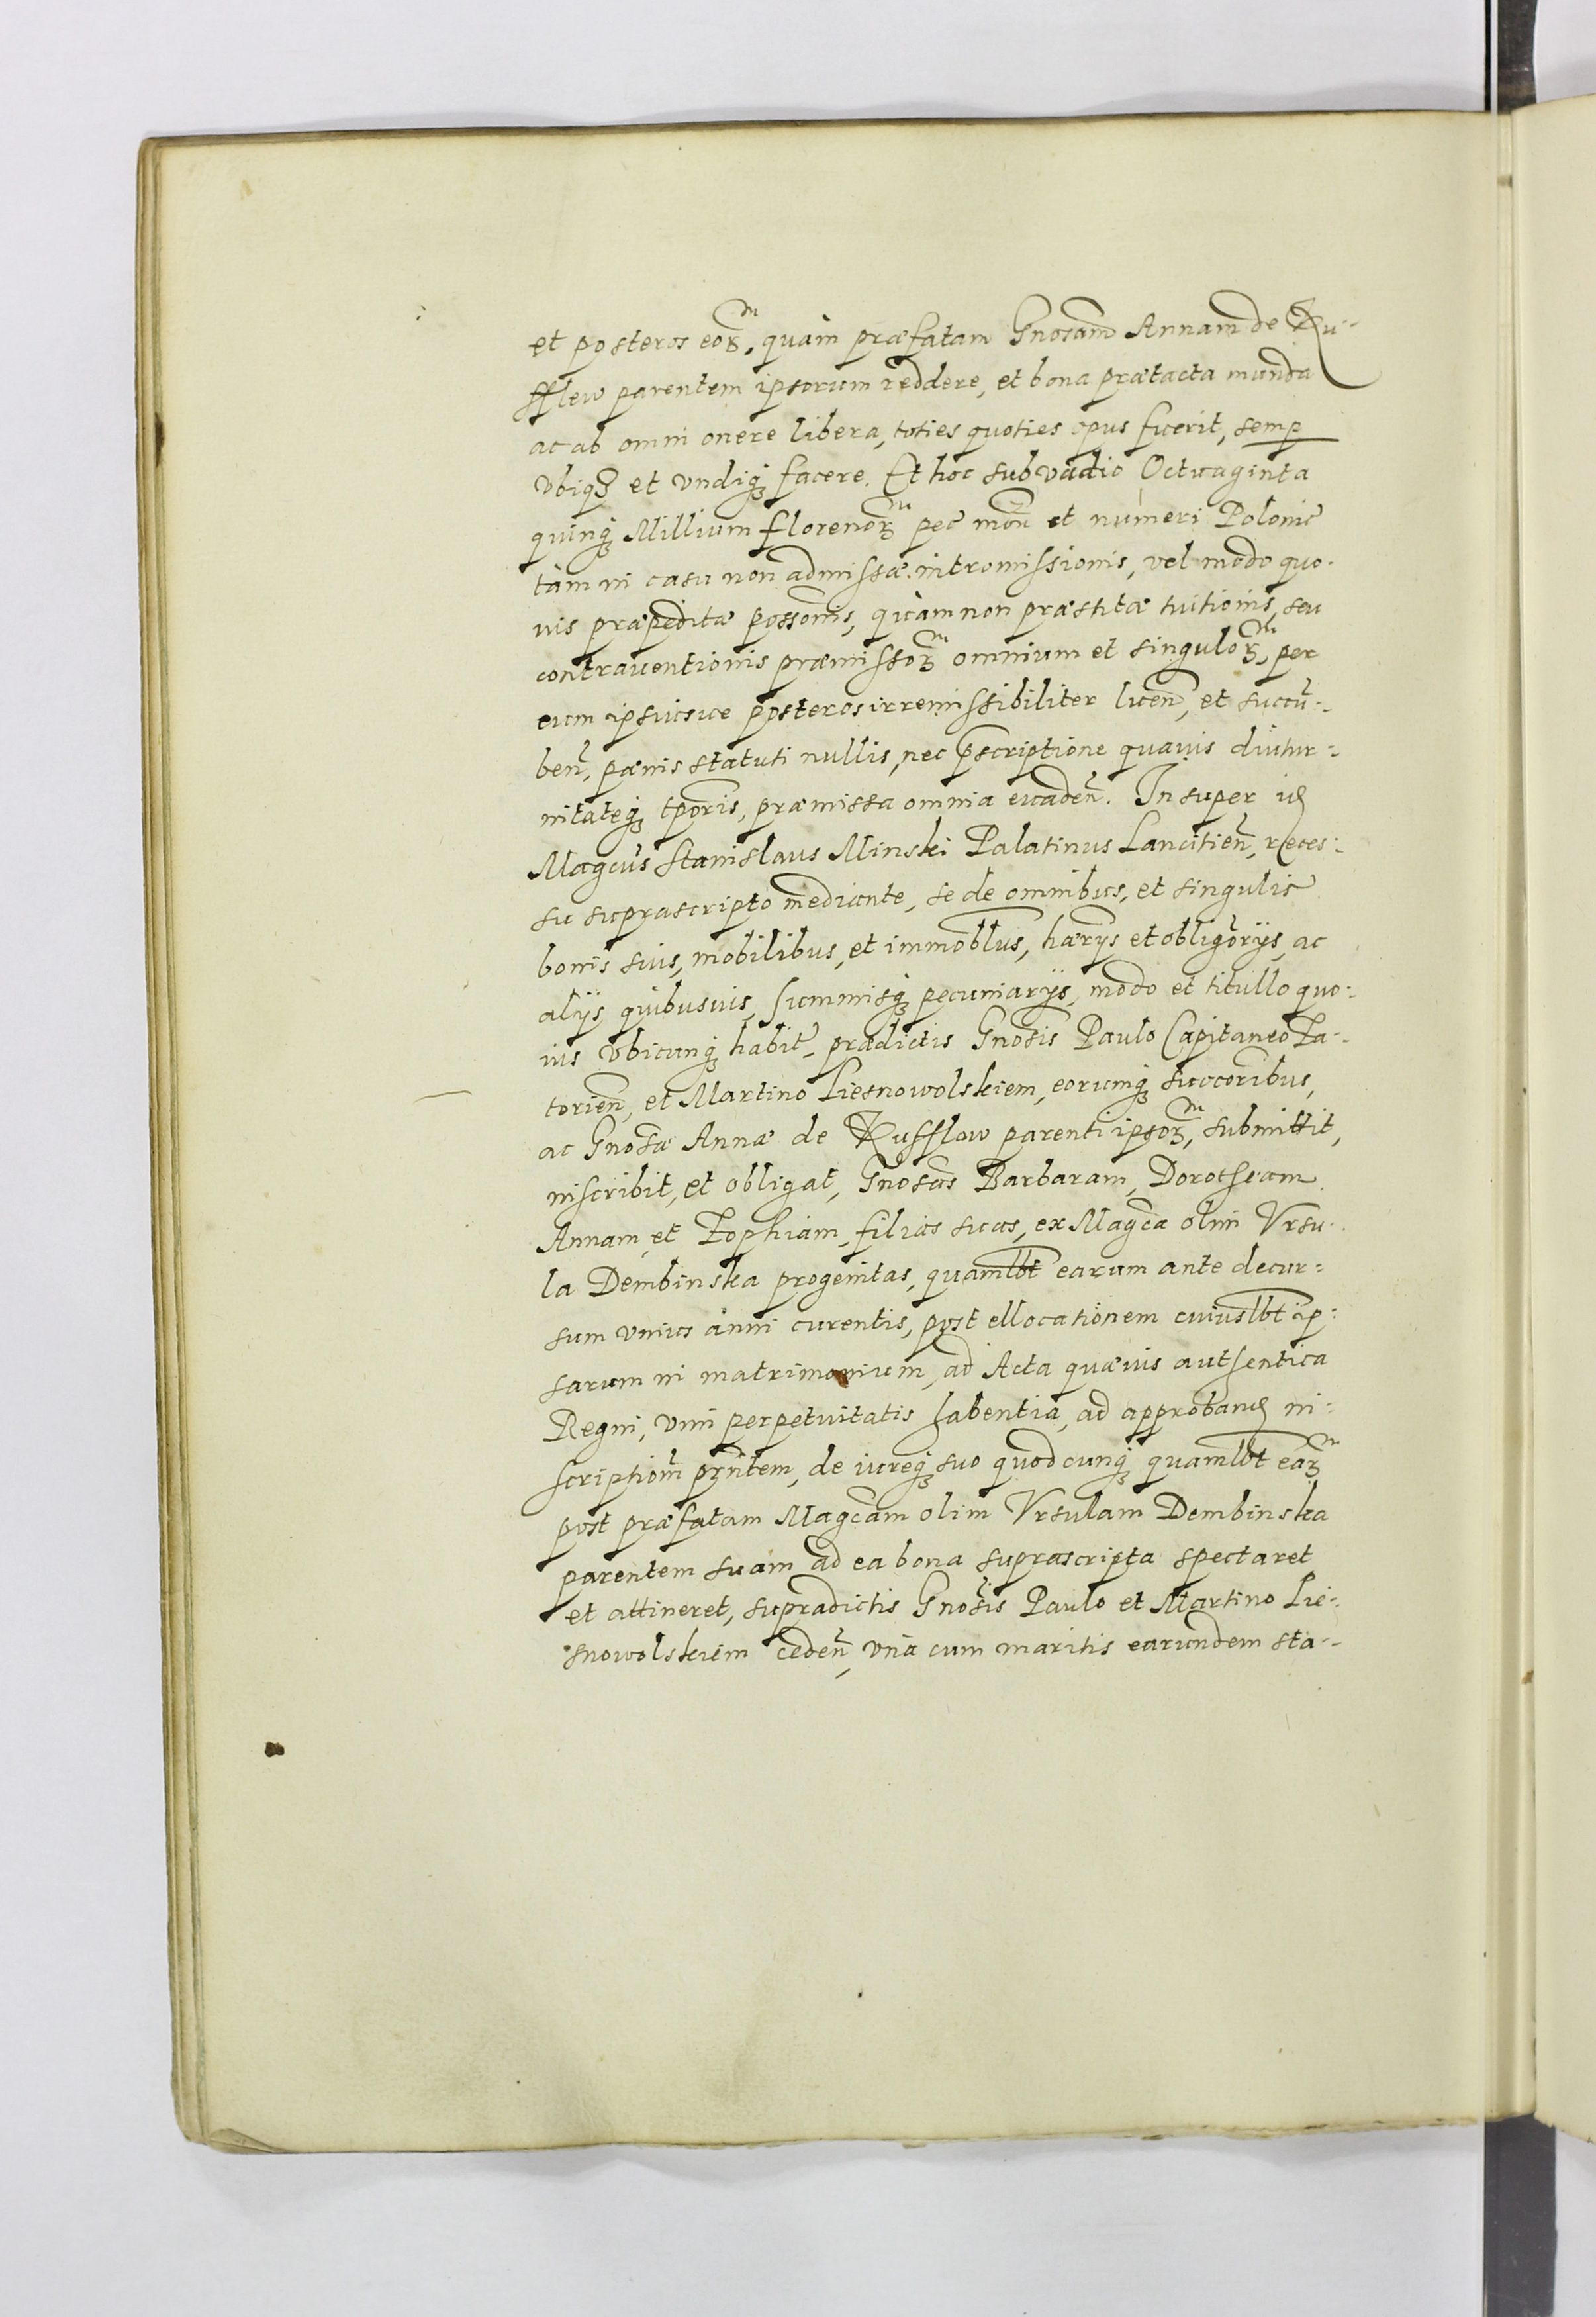 et posteros eoꝝ, quàm præfatam Gnosam Annam de Ru-
sslew parentem ipsorum reddere, et bona prætacta munda
ac ab omni onere libera, toties quoties opus fuerit, semp
vbiqꝫ et vndiqꝫ facere. Et hoc sub vadio Octuaginta
quinqꝫ Millium florenoꝝ pec̃ mon̄ et numeri Polonic̃
tàm in casu non admissæ intromissionis, vel modo quo-
uis præpeditæ possonis, quàm non præstitæ tuitionis, seu
contrauentionis præmissoꝝ omnium et singuloꝝ, per
eum ipsiusue posteros irremissibiliter luen̄, et succū-
ben̄, pænis statuti nullis, nec p̄scriptione quauis diutur-
nitateqꝫ tporis, præmissa omnia euaden̄. In super id
Magcus Stanislaus Minski Palatinus Lancitien̄, reces-
su suprascripto mediante, se de omnibus, et singulis
bonis suis, mobilibus, et immoblbus, hærys et obligorijs, ac
alijs quibusuis, summisqꝫ pecuniarijs, modo et titullo quo-
uis vbicunqꝫ habit̃, prædictis Gnosis Paulo Capitaneo La-
torien̄, et Martino Liesnowolskiem, eorumqꝫ succoribus,
ac Gnosæ Annæ de Russlow parenti ipsoꝝ, submittit,
inscribit, et obligat, Gnosas Barbaram, Dorotheam
Annam, et Zophiam, filias suas, ex Magca olim Vrsu-
la Dembinska progenitas, quamlbt earum ante decur-
sum vnius anni curentis, post ellocationem cuiuslbt ip-
sarum in matrimonium, ad Acta quæuis authentica
Regni, vim perpetuitatis habentia, ad approband in-
scription̄ pr̄ntem, de iureqꝫ suo quodcunqꝫ quamlbt eaꝝ
post præfatam Magcam olim Vrsulam Dembinska
parentem suam ad ea bona suprascripta spectaret
et attineret, supradictis Gnosis Paulo et Martino Lie-
snowolskiem ceden̄, vnà cum maritis earundem sta-